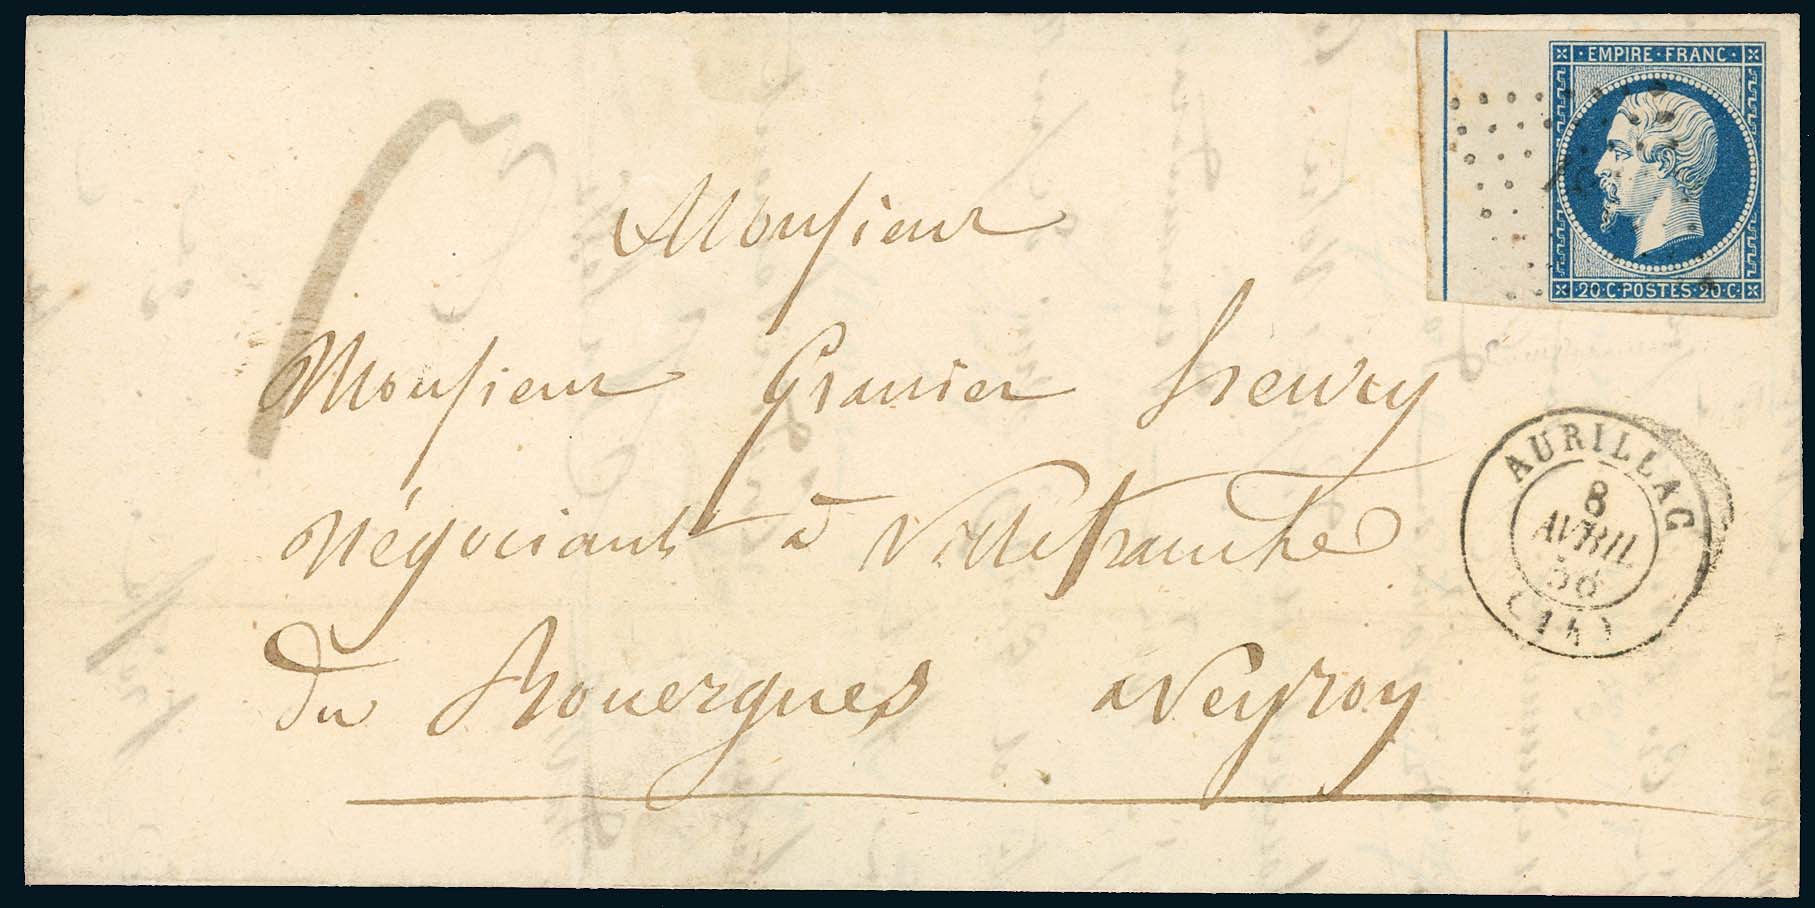 EMPIRE · FRANC ·
20 · C · POSTES · 20 · C ·
Monsieur
Monsieur Granier henry
négociant à Villefranche
du Rouergues aveyron
AURILLAC
8
AVRIL
56
(14)